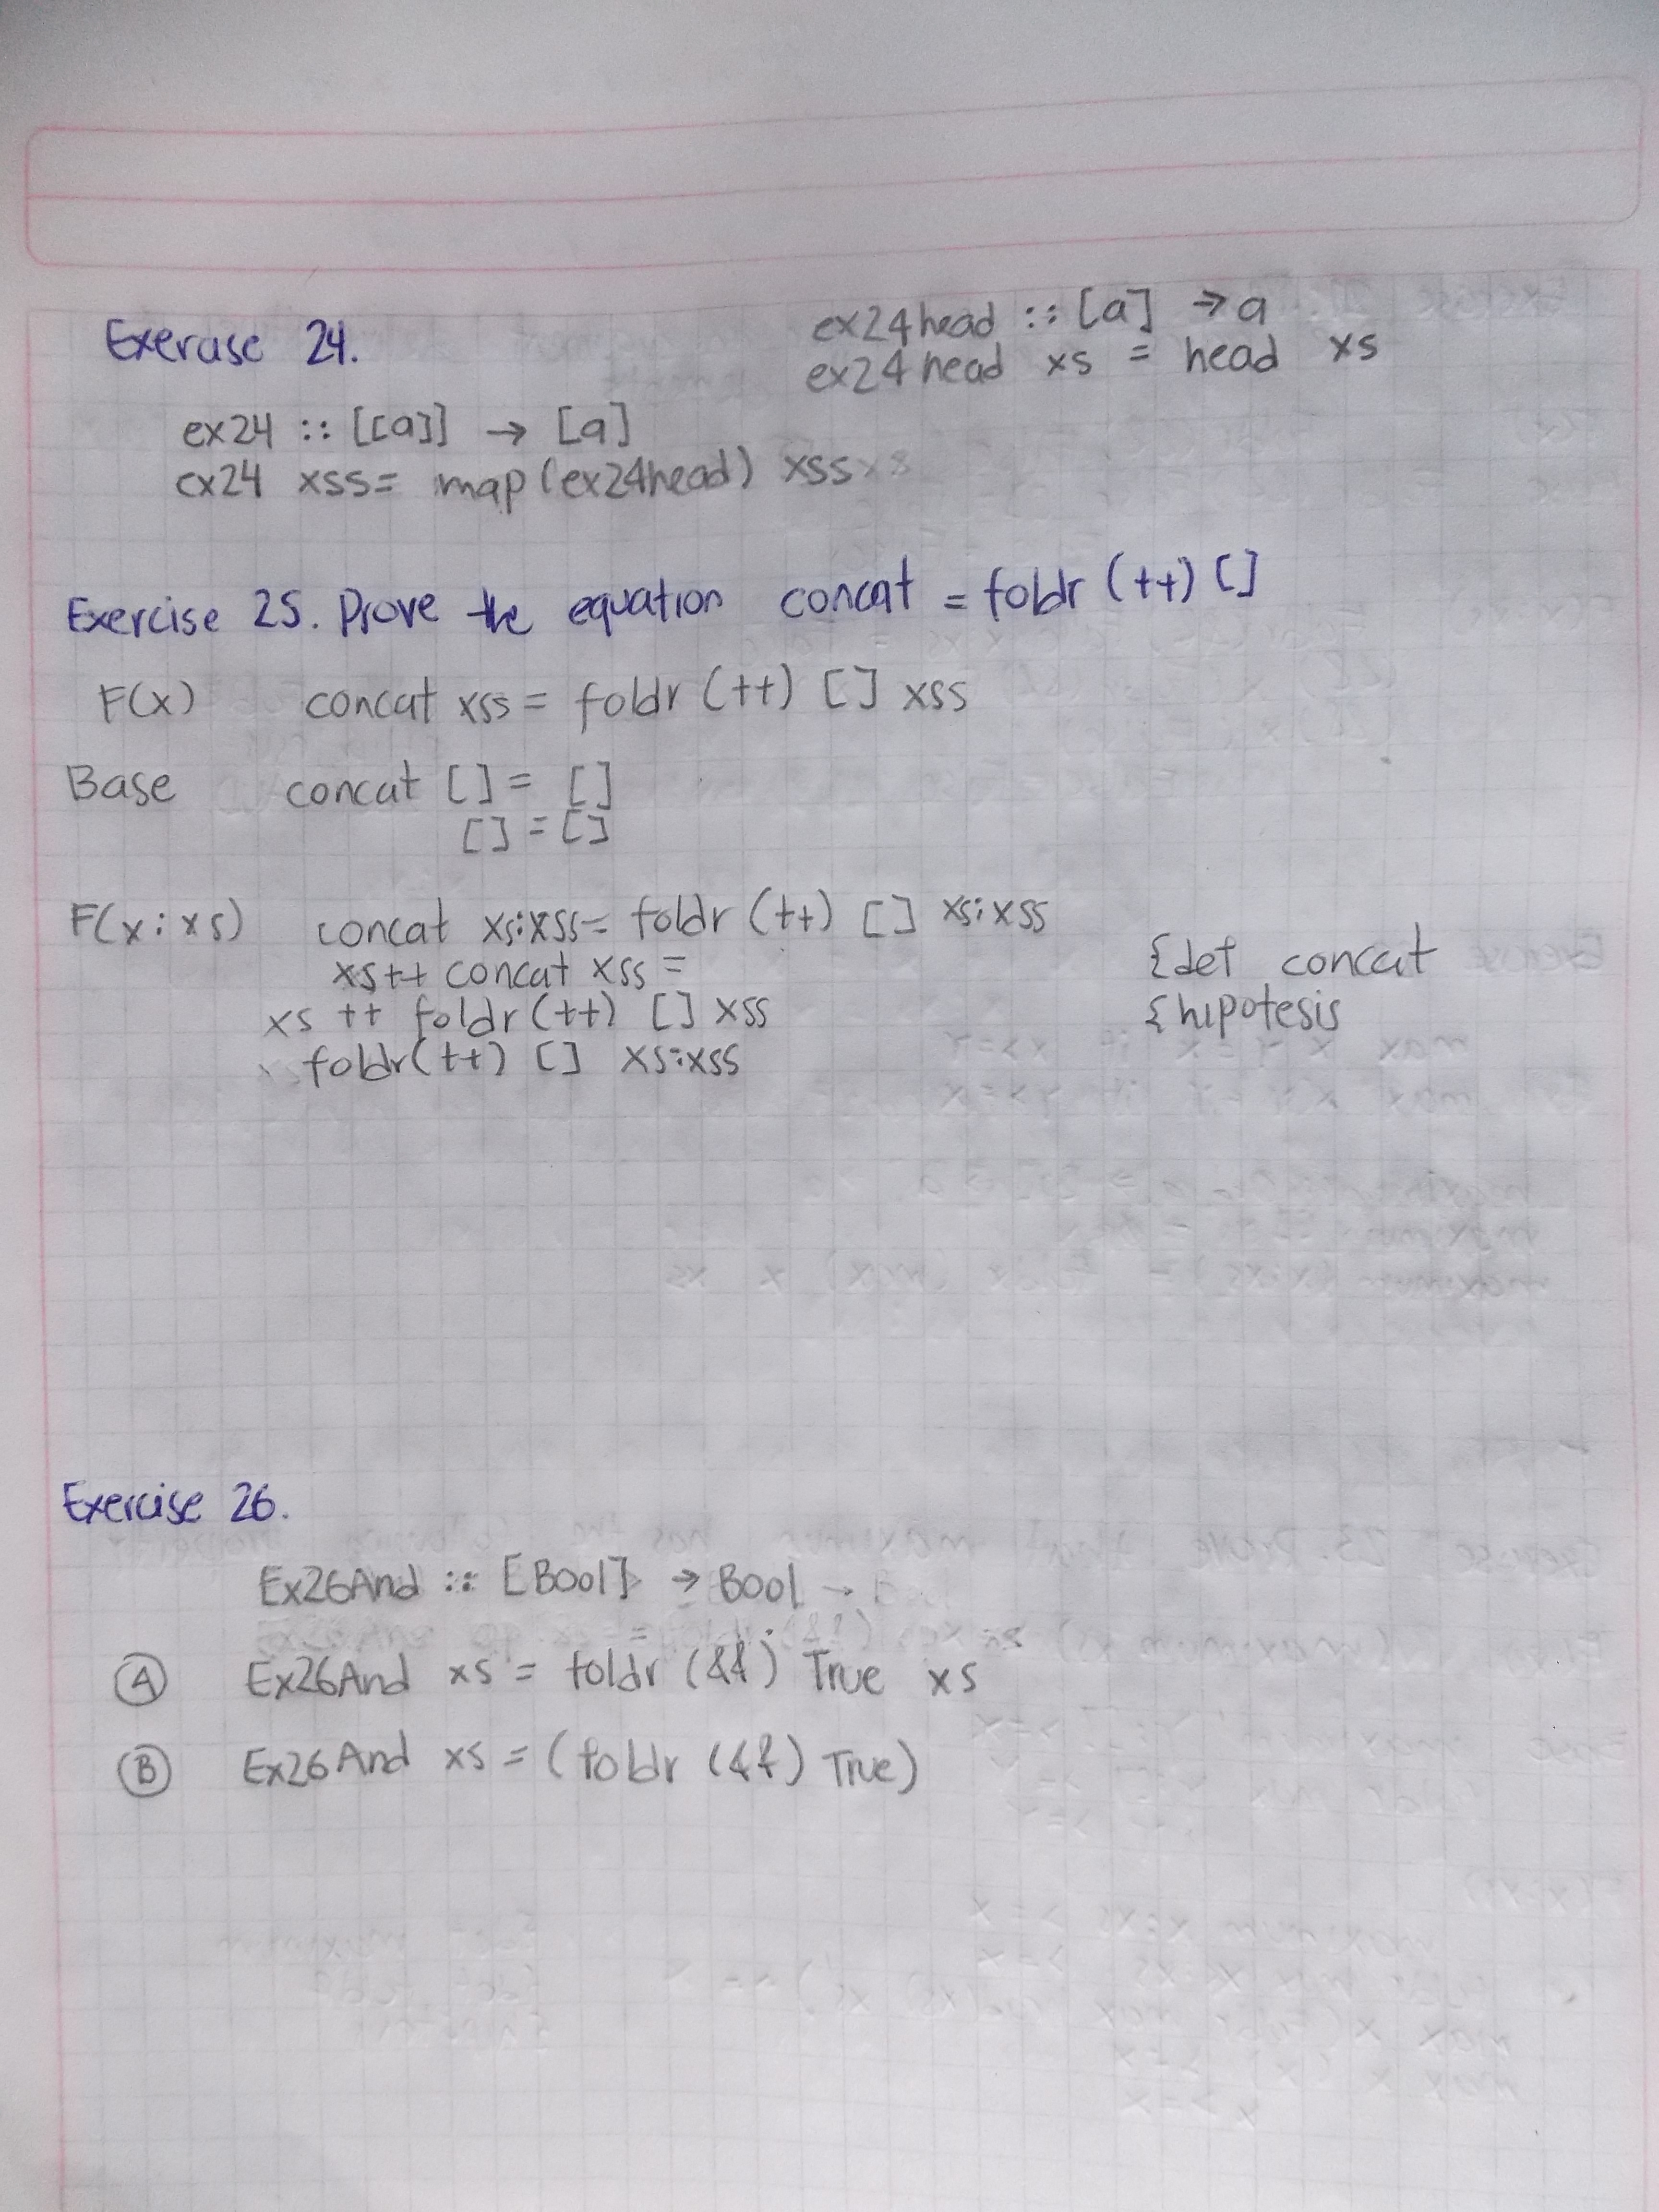 Exercise 24.
ex24head :: [a] → a
ex24head xs = head xs
ex24 :: [[a]] → [a]
ex24 xss = map (ex24head) xss
Exercise 25. Prove the equation concat = foldr (++) []
F(x) concat xss = foldr (++) [] xss
Base concat [] = []
[] = []
F(x:xs) concat xs:xss = foldr (++) [] xs:xss
xs ++ concat xss = {def concat
xs ++ foldr (++) [] xss {hipotesis
foldr (++) [] xs:xss
Exercise 26.
Ex26And :: [Bool] → Bool
A Ex26And xs = foldr (&&) True xs
B Ex26And xs = (foldr (&&) True)